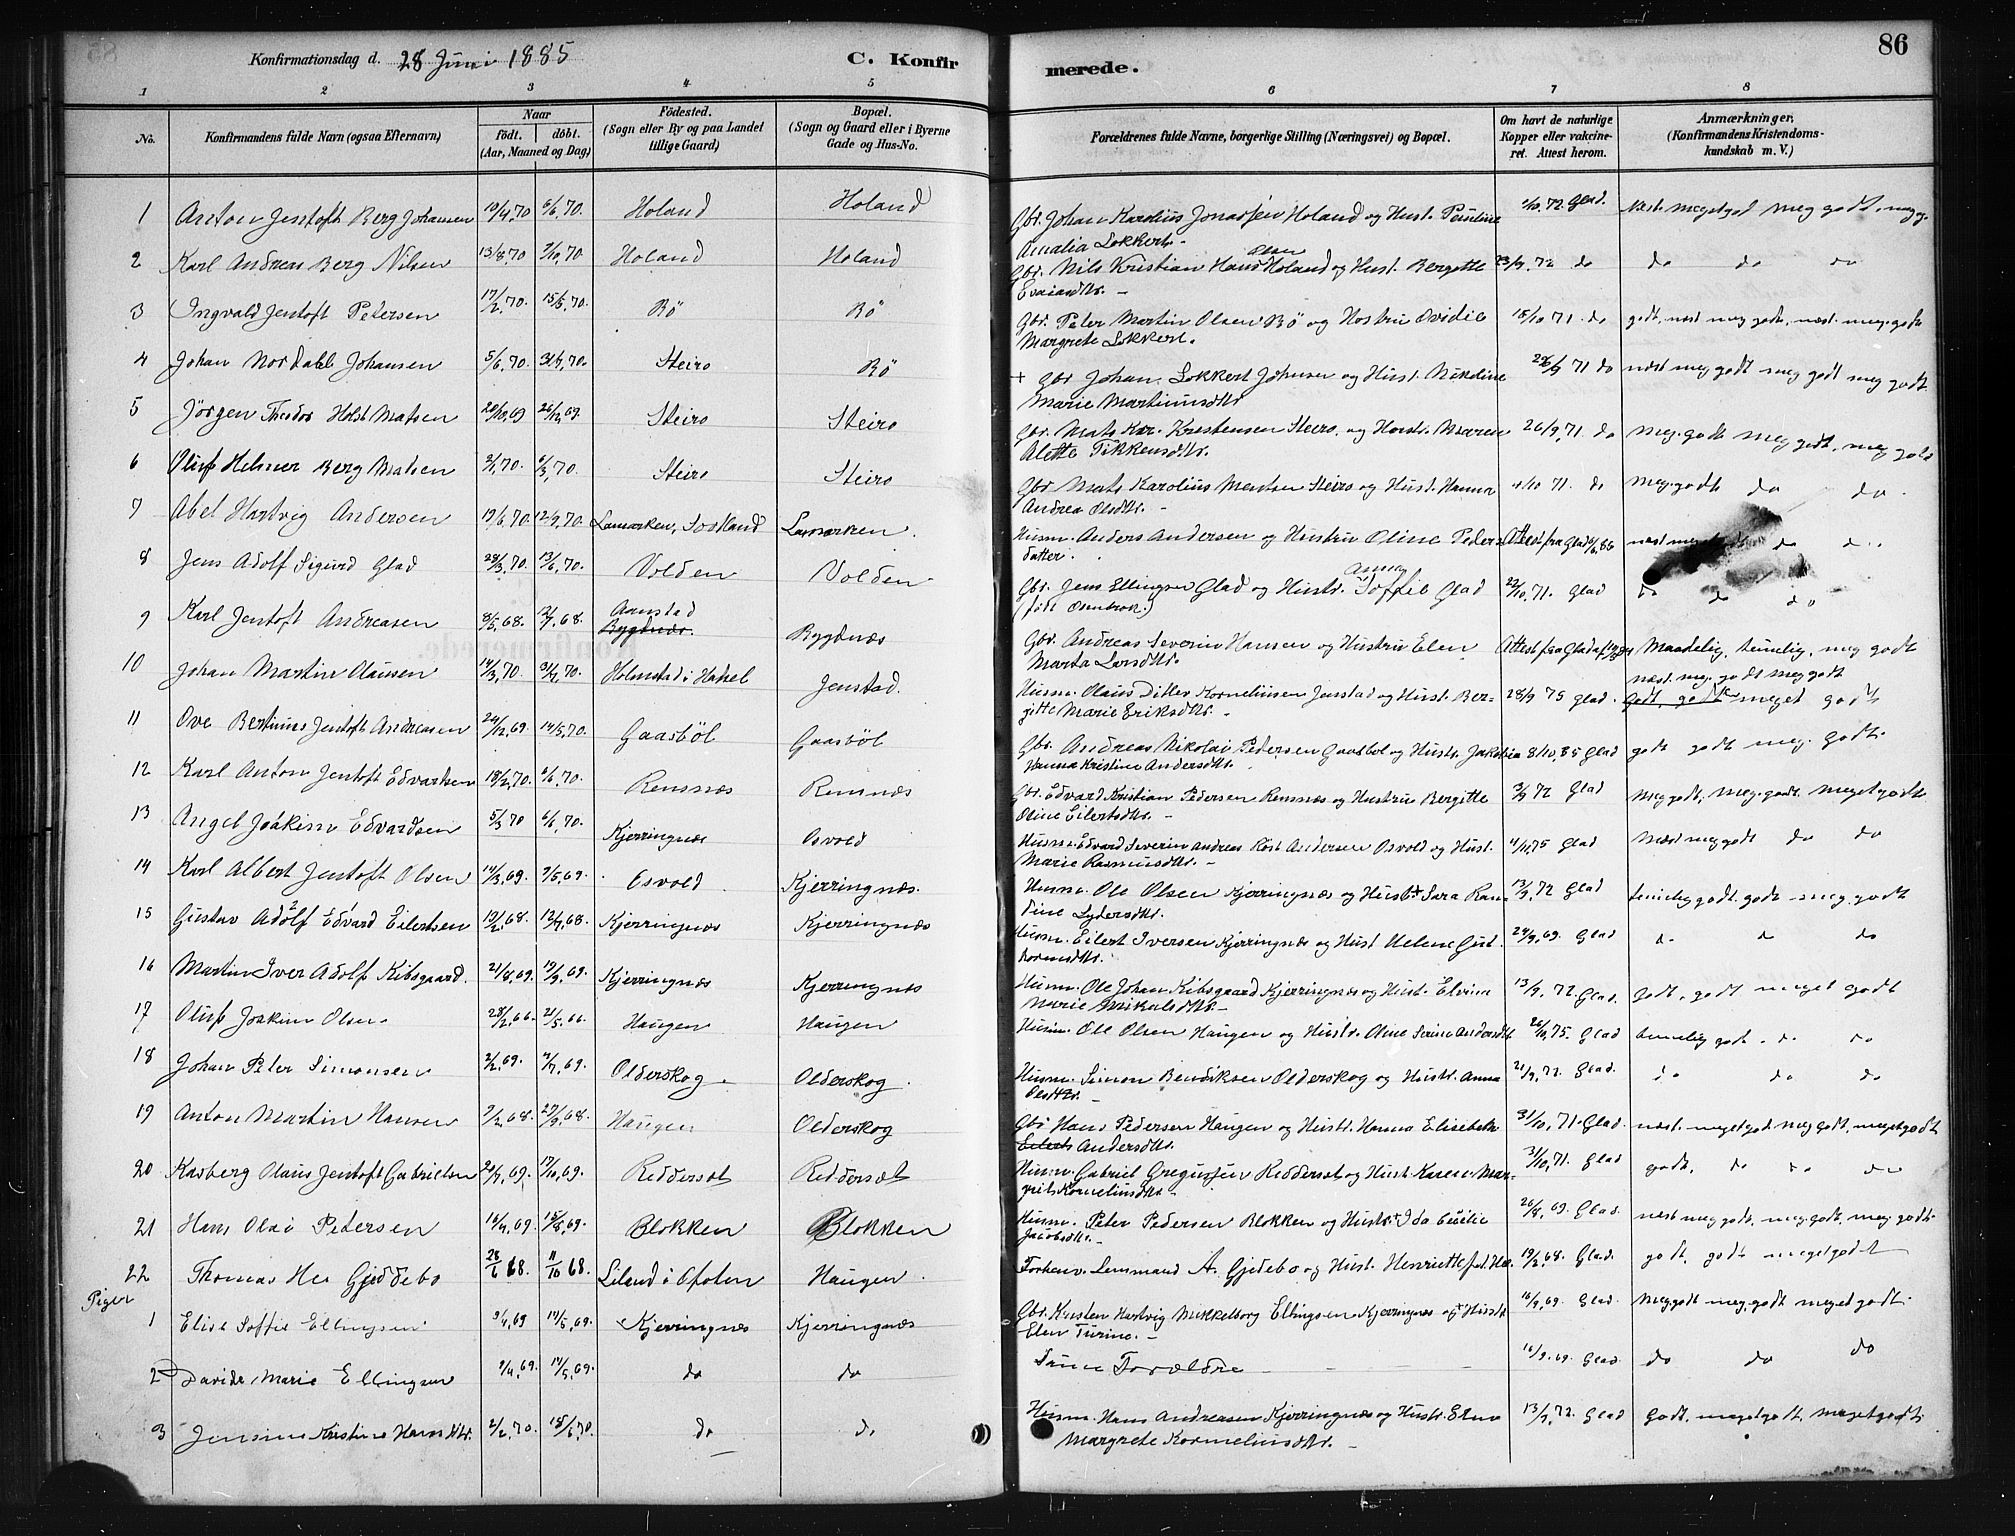 Konfirmationsdag d. 28 Juni 1885
C. Konfirmerede.
86
1 2 3 4 5 6 7 8
No. Konfirmandens fulde Navn (ogsaa Efternavn) Naar födt. döbt. (Aar, Maaned og Dag) Födested. (Sogn eller By og paa Landet tillige Gaard) Bopæl. (Sogn og Gaard eller i Byerne Gade og Hus-No. Forældrenes fulde Navne, borgerlige Stilling (Næringsvei) og Bopæl. Om havt de naturlige Kopper eller vakcineret. Attest herom. Anmærkninger, (Konfirmandens Kristendomskundskab m. V.)
1 Anton Jentoft Berg Johansen 10/4,70 6/6,70. Holand Holand Gbr. Johan Karolius Jonassen Holand og Hust. Pauline 72. Glad. Næst. megetgod meg godt.
Amalia Lokkert. -
2 Karl Andreas Berg Nilsen 13/8,70 7/10,70 Holand Holand Gbr. Nils Kristian Hans Olsen Holand og Hust. Bergitte 23/9,72 do do do do
3 Ingvald Jentoft Petersen 17/2,70. 15/5,70. Bö Bö Gbr. Peter Martin Olsen Bö og Hustru Ovidie 18/10 71. do godt. næst meg godt, næst. meg. godt
Margrete Lokkert.
4 Johan Nordahl Johansen 5/6,70 31/7,70. Steiro Bö + Gbr Johan Lokkert Johnsen og Hust. Nikoline 71 do næst meg godt meg godt meg godt
Marie Martinusdtr
5 Jörgen Theodor Holst Matsen 20/10,69 26/12,69. Steiro Steiro Gbr. Mats Kar. Kristensen Steiro og Hustr. Maren 26/9,71. do meg. godt meg godt, meg godt
Alette Tikkensdtr.
6 Oluf Helmer Berg Matsen 2/1,70. 6/3,70. Steiro Steiro Gbr. Mats Karolius Mentsen Steiro og Hust. Hanna 71. do Meg. godt do do
Andrea Olsdtr. -
7 Abel Hartvig Andersen 19/6,70. 12/9,70. Lamarken, Lamarken. Husm. Anders Andersen og Hustru Oline Peders Attest fra Glad
datter.
8 Jens Adolf Sigurd Glad 28/3,70. 13/6,70. Volden Volden. Gbr. Jens Ellingsen Glad og Hustr. Anna Soffie Glad 22/10,71. Glad do do do
9 Karl Jentoft Andreasen 8/5,68. 2/7,68. Aanstad Bygdnæs. Bygdnæs Gbr. Andreas Severin Hansen og Hustru Elen Attest fra Glad Maadelig, temelig, meg godt
Marta Larsdtr.
10 Johan Martin Olausen 14/3,70. 31/7,70. Holmstad i Hassel Jenstad. Husm. Olaus Ditlev Kornelinsen Jenstad og Hust. Ber- 28/9 75 Glad. næst. meg. godt meg godt
gitte Marie Eriksdtr. -
godt, godt meget godt
11 Ove Bertinus Jentoft Andreasen 24/12,69. 14/5,70. Gaasböl Gaasböl Gbr. Andreas Nikolai Pedersen Gaasböl og Hustr. 8/10,85 Glad godt godt meg. godt.
Hanna Kristine Andersdtr. -
12 Karl Anton Jentoft Edvardsen 18/2,70. 6/6,70. Remnæs Remnæs Gbr. Edvard Kristian Pedersen Remnæs og Hustru Bergitte 3/9 72 Glad Meg godt, meg. godt. megetgodt
Oline Eilertsdtr. -
13 Angel Joakim Edvardsen 5/3,70 6/6,70. Kjerringnæs Osvold Husm. Edvard Severin Andreas Andersen Osvold og Hust. 75 Glad Næst meg godt do do
Marie Rasmusdtr. -
14 Karl Albert Jentoft Olsen 14/3,69. 7/5,69. Osvold. Kjerringnæs. Husm. Ole Olsen Kjerringnæs og Hust+ Sara Ran- 13/9,72 Glad temelig godt. godt - meg. godt
dine Lydersdtr.
15 Gustav Adolf Edvard Eilertsen 13/2,68. 12/7,68. Kjerringnæs Kjerringnæs Husm. Eilert Iversen Kjerringnæs og Hust Helene Gut- 24/9,69. Glad do do do
hormsdtr.
16 Martin Iver Adolf Kibsgaard. 21/8,69. 19/9,69. Kjerringnæs Kjerringnæs Husm. Ole Johan Kibsgaard Kjerringnæs og Hust. Elvina 13/9,72 Glad. godt, godt meget godt
Marie Mikalsdtr. -
17 Oluf Joakim Olsen 28/2,66. 21/5,66. Haugen Haugen Husm. Ole Olsen Haugen og Hustr. Oline Serine Andersdtr 75. Glad temelig godt. do do
18 Johan Peter Simonsen 2/2,69. 69. Olderskog. Olderskog. Husm. Simon Bendiksen Olderskog og Hustr. Anna 21/9,72. Glad. do do do
Olsdtr.
19 Anton Martin Hansen 68. 27/9,68. Haugen Olderskog Gbr Hans Pedersen Haugen og Hustr. Hanna Elisabeth 31/10,71. Glad. næst. megetgodt. meg godt, megetgodt
Eilerts Andersdtr.
20 Kasberg Olaus Jentoft Gabrielsen 69. 17/10,69. Reddersæt Reddersæt Husm. Gabriel Gregussen Reddersæt og Hust. Karen Mar- 31/10,71. Glad godt, do do do
grete Kornelinsdtr -
21 Hans Olai Petersen 16/4,69. 15/8,69. Blokken Blokken Husm. Peter Pedersen Blokken og Hustr+ Ida Cecilie 26/8,69. Glad. næst meg godt, meg. godt, meg godt.
Jacobsdtr. -
22 Thomas Gjeddebo 28/6 68. 11/10 68. Liland i Ofoten Haugen. Forhenv. Lensmand A. Gjedebo og Hust. Henriette 19/2,68. Glad. godt, godt megetgodt
Piger
1 Elise Soffie Ellingsen 9/4,69 17/5,69. Kjerringnæs Kjerringnæs Gbr. Kristen Hartvig Mikkelborg Ellingsen Kjerringnæs og+ Hustr 16/9,69. Glad. Meg godt meg. godt meget godt.
Elen Turine. -
2 Davida Marie Ellingsen 9/4,69. 17/5,69. do do Samme Forældre 16/9,69. Glad. do do do
3 Jensine Kristine Hansdtr. 2/2,70. 18/6,70. do do Husm. Hans Andreasen Kjerringnæs og Hustr. Elen 13/9,72. Glad Godt, megetgodt, megetgodt.
Margrete Kornelinsdtr. -